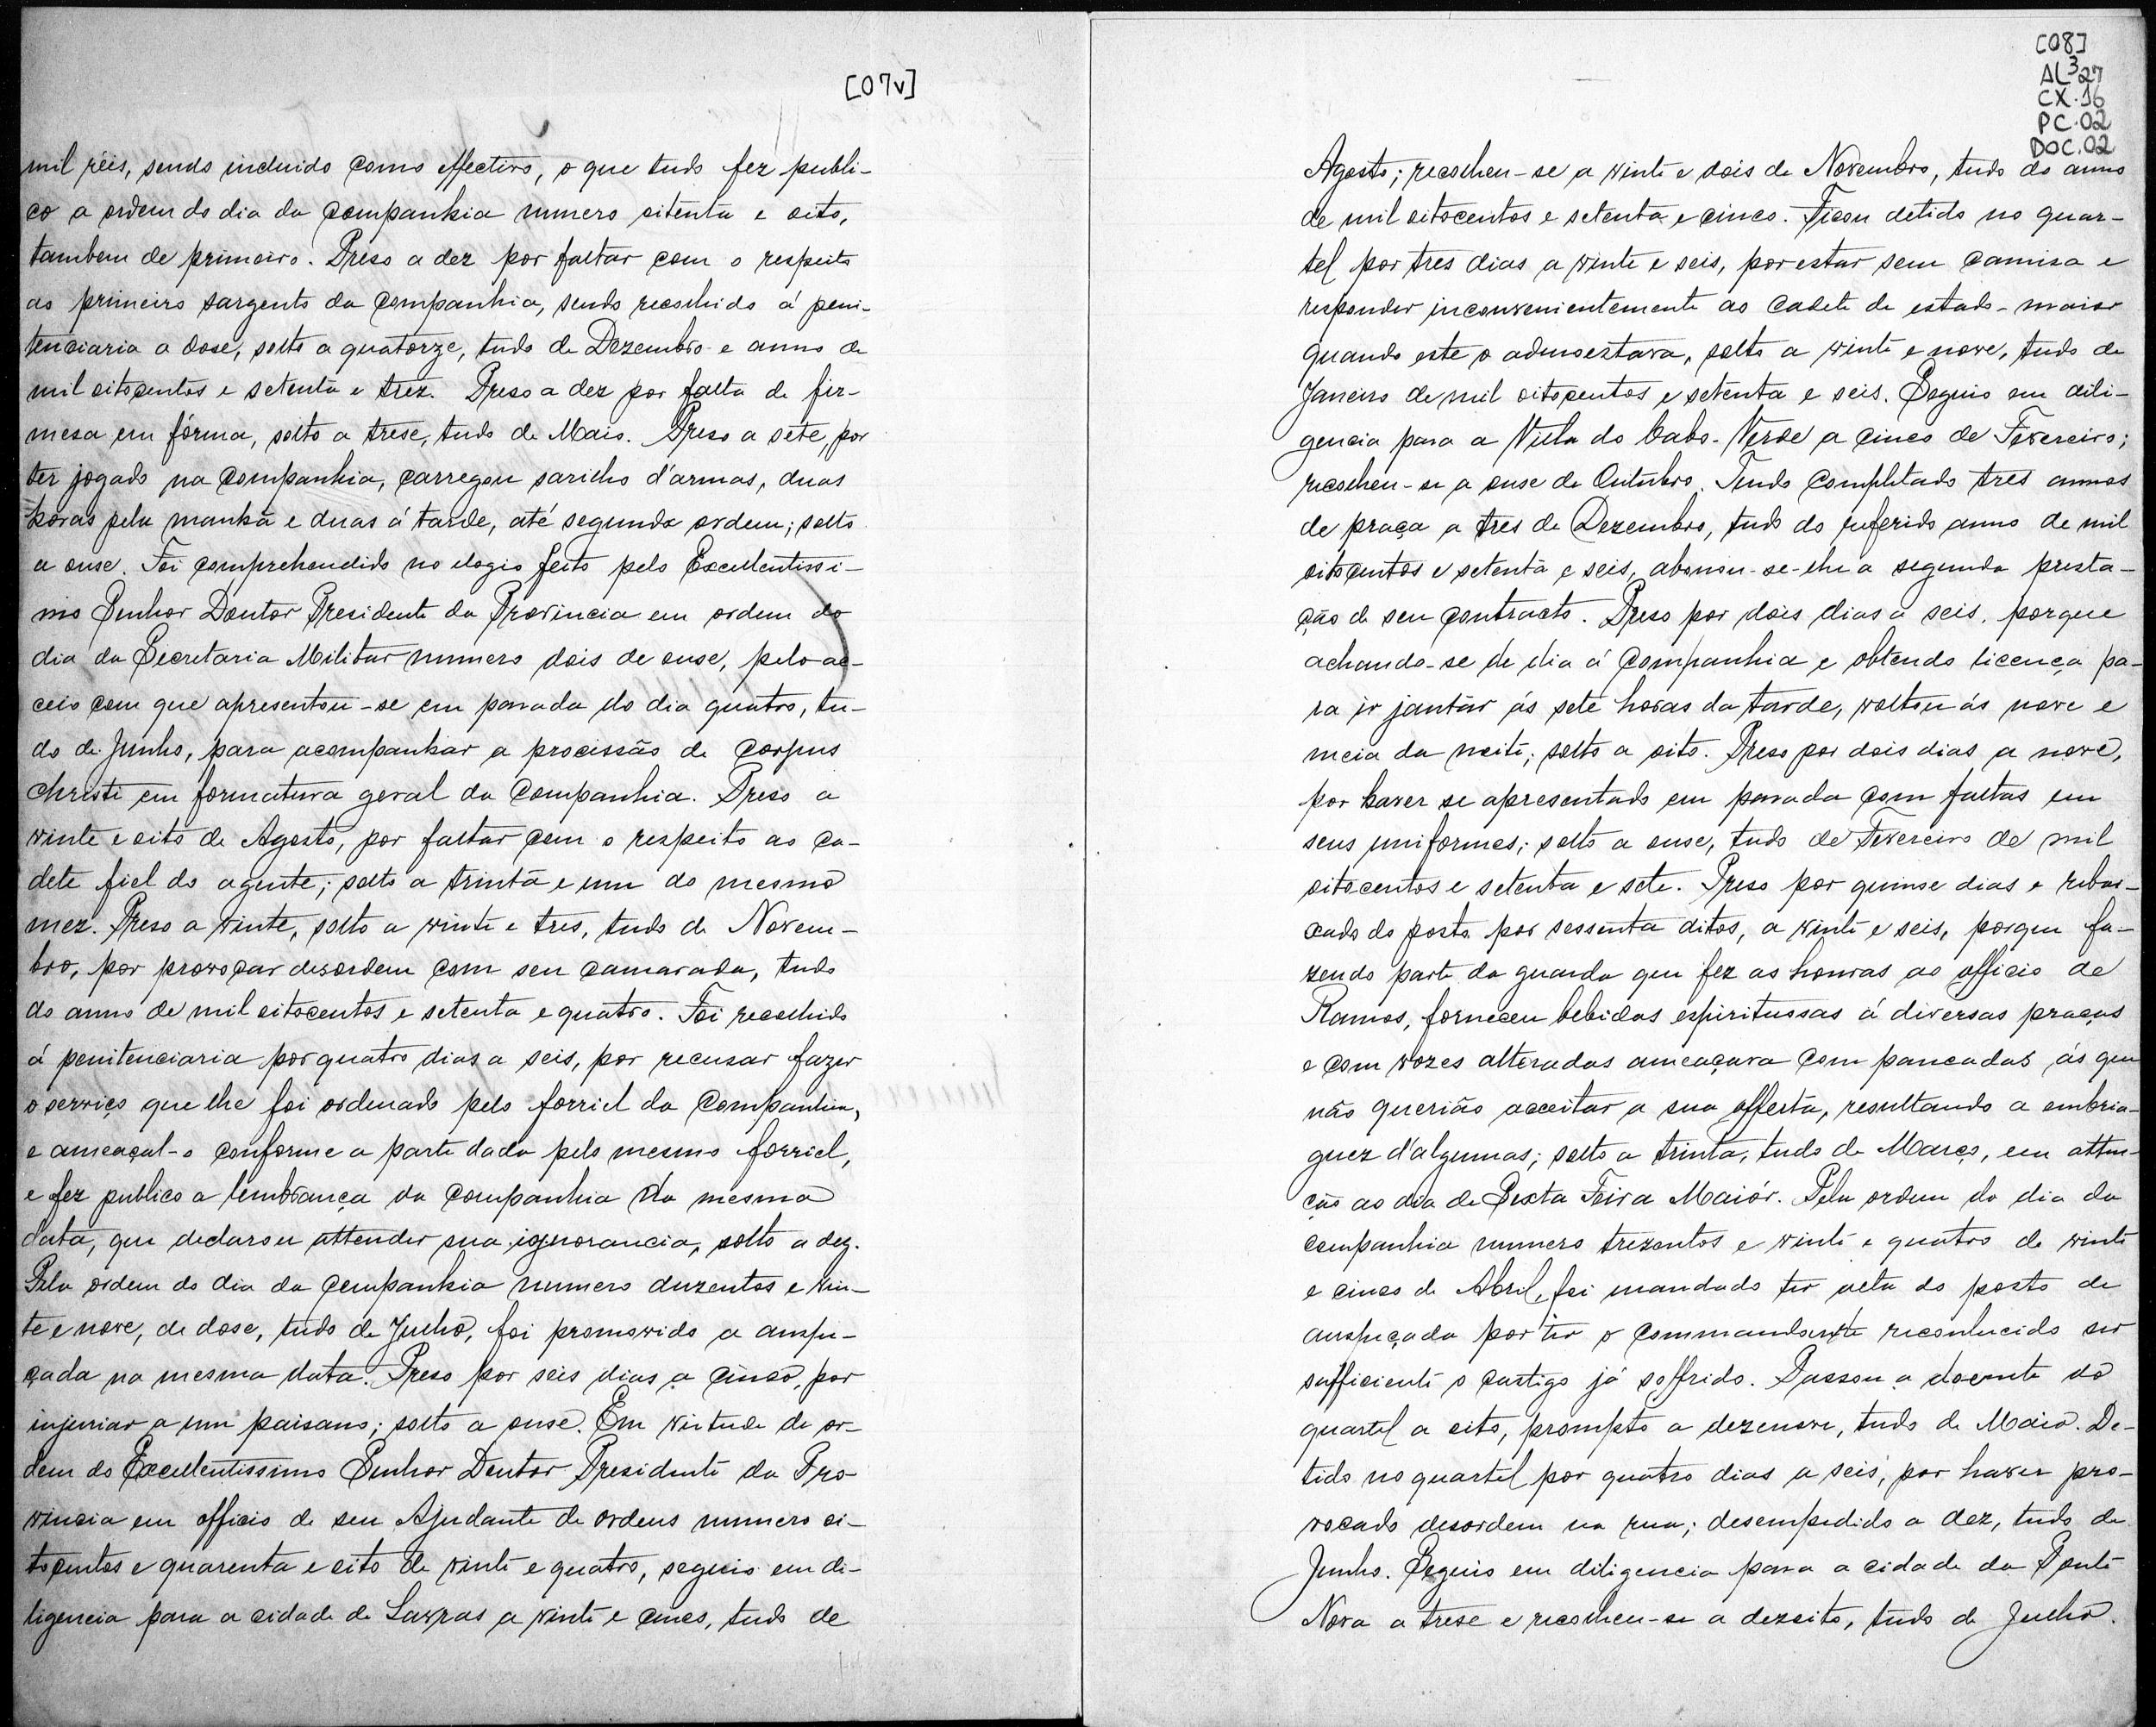 [07v]
mil réis, sendo incluido como effectivo, o que tudo fez publi-
co a ordem do dia da Companhia numero oitenta e oito,
tambem de primeiro. Preso a dez por faltar com o respeito
ao primeiro sargento da Companhia, sendo recolhido á peni-
tenciaria a dose, solto a quatorze, tudo de Dezembro e anno de
mil oitocentos e setenta e trez. Preso a dez por falta de fir-
mesa em fórma, solto a trese, tudo de Maio. Preso a sete, por
ter jogado na Companhia, carregou sarilho d'armas, duas
horas pela manhã e duas á tarde, até segunda ordem; solto
a onse. Foi comprehendido no elogio feito pelo Excellentissi-
mo Senhor Doutor Presidente da Provincia em ordem do
dia da Secretaria Militar numero dois de onse, pelo as-
ceio com que apresentou-se em parada do dia quatro, tu-
do de Junho, para acompanhar a procissão de Corpus
Christi em formatura geral da Companhia. Preso a
vinte e oito de Agosto, por faltar com o respeito ao ca-
dete fiel do agente; solto a trinta e um do mesmo
mez. Preso a vinte, solto a vinte e tres, tudo de Novem-
bro, por provocar desordem com seu camarada, tudo
do anno de mil oitocentos e setenta e quatro. Foi recolhido
á penitenciaria por quatro dias a seis, por recusar fazer
o serviço que lhe foi ordenado pelo forriel da Companhia,
e ameaçal-o conforme a parte dada pelo mesmo forriel,
e fez publico a lembrança da Companhia da mesma
data, que declarou attender sua ignorancia, solto a dez.
Pela ordem do dia da Companhia numero duzentos e vin-
te e nove, de dose, tudo de Julho, foi promovido a anspe-
çada na mesma data. Preso por seis dias a cinco, por
injuriar a um paisano; solto a onse. Em virtude de or-
dem do Excellentissimo Senhor Doutor Presidente da Pro-
vincia em officio de seu Ajudante de ordens numero oi-
tocentos e quarenta e oito de vinte e quatro, seguio em di-
ligencia para a cidade de Lavras a vinte e cinco, tudo de
[08]
AL3 27
CX.16
PC.02
DOC.02
Agosto; recolheu-se a vinte e dois de Novembro, tudo do anno
de mil oitocentos e setenta e cinco. Ficou detido no quar-
tel por tres dias a vinte e seis, por estar sem camisa e
responder inconvenientemente ao Cadete de estado-maior
quando este o admoestava, solto a vinte e nove, tudo de
Janeiro de mil oitocentos e setenta e seis. Seguio em dili-
gencia para a Villa do Cabo-Verde a cinco de Fevereiro;
recolheu-se a onse de Outubro. Tendo completado tres annos
de praça a tres de Dezembro, tudo do referido anno de mil
oitocentos e setenta e seis, abonou-se-lhe a segunda presta-
ção de seu contracto. Preso por dois dias a seis, porque
achando-se de dia á Companhia e obtendo licença pa-
ra ir jantar ás sete horas da tarde, voltou ás nove e
meia da noite; solto a oito. Preso por dois dias a nove,
por haver se apresentado em parada com faltas em
seus uniformes; solto a onse, tudo de Fevereiro de mil
oitocentos e setenta e sete. Preso por quinse dias e rebai-
xado do posto por sessenta ditos, a vinte e seis, porque fa-
zendo parte da guarda que fez as honras ao officio de
Ramos, forneceu bebidas espiritussas á diversas praças
e com vozes alteradas ameaçava com pancadas ás que
não querião acceitar a sua offerta, resultando a embria-
guez d'algumas; solto a trinta, tudo de Março, em atten-
ção ao dia de Sexta Feira Maiór. Pela ordem do dia da
companhia numero trezentos e vinte e quatro de vinte
e cinco de Abril, foi mandado ter alta do posto de
anspeçada por ter o Commandante reconhecido ser
sufficiente o castigo já soffrido. Passou a doente do
quartel a oito, prompto a dezenove, tudo de Maio. De-
tido no quartel por quatro dias a seis, por haver pro-
vocado desordem na rua; desempedido a dez, tudo de
Junho. Seguio em diligencia para a cidade da Ponte
Nova a trese e recolheu-se a dezoito, tudo de Julho.